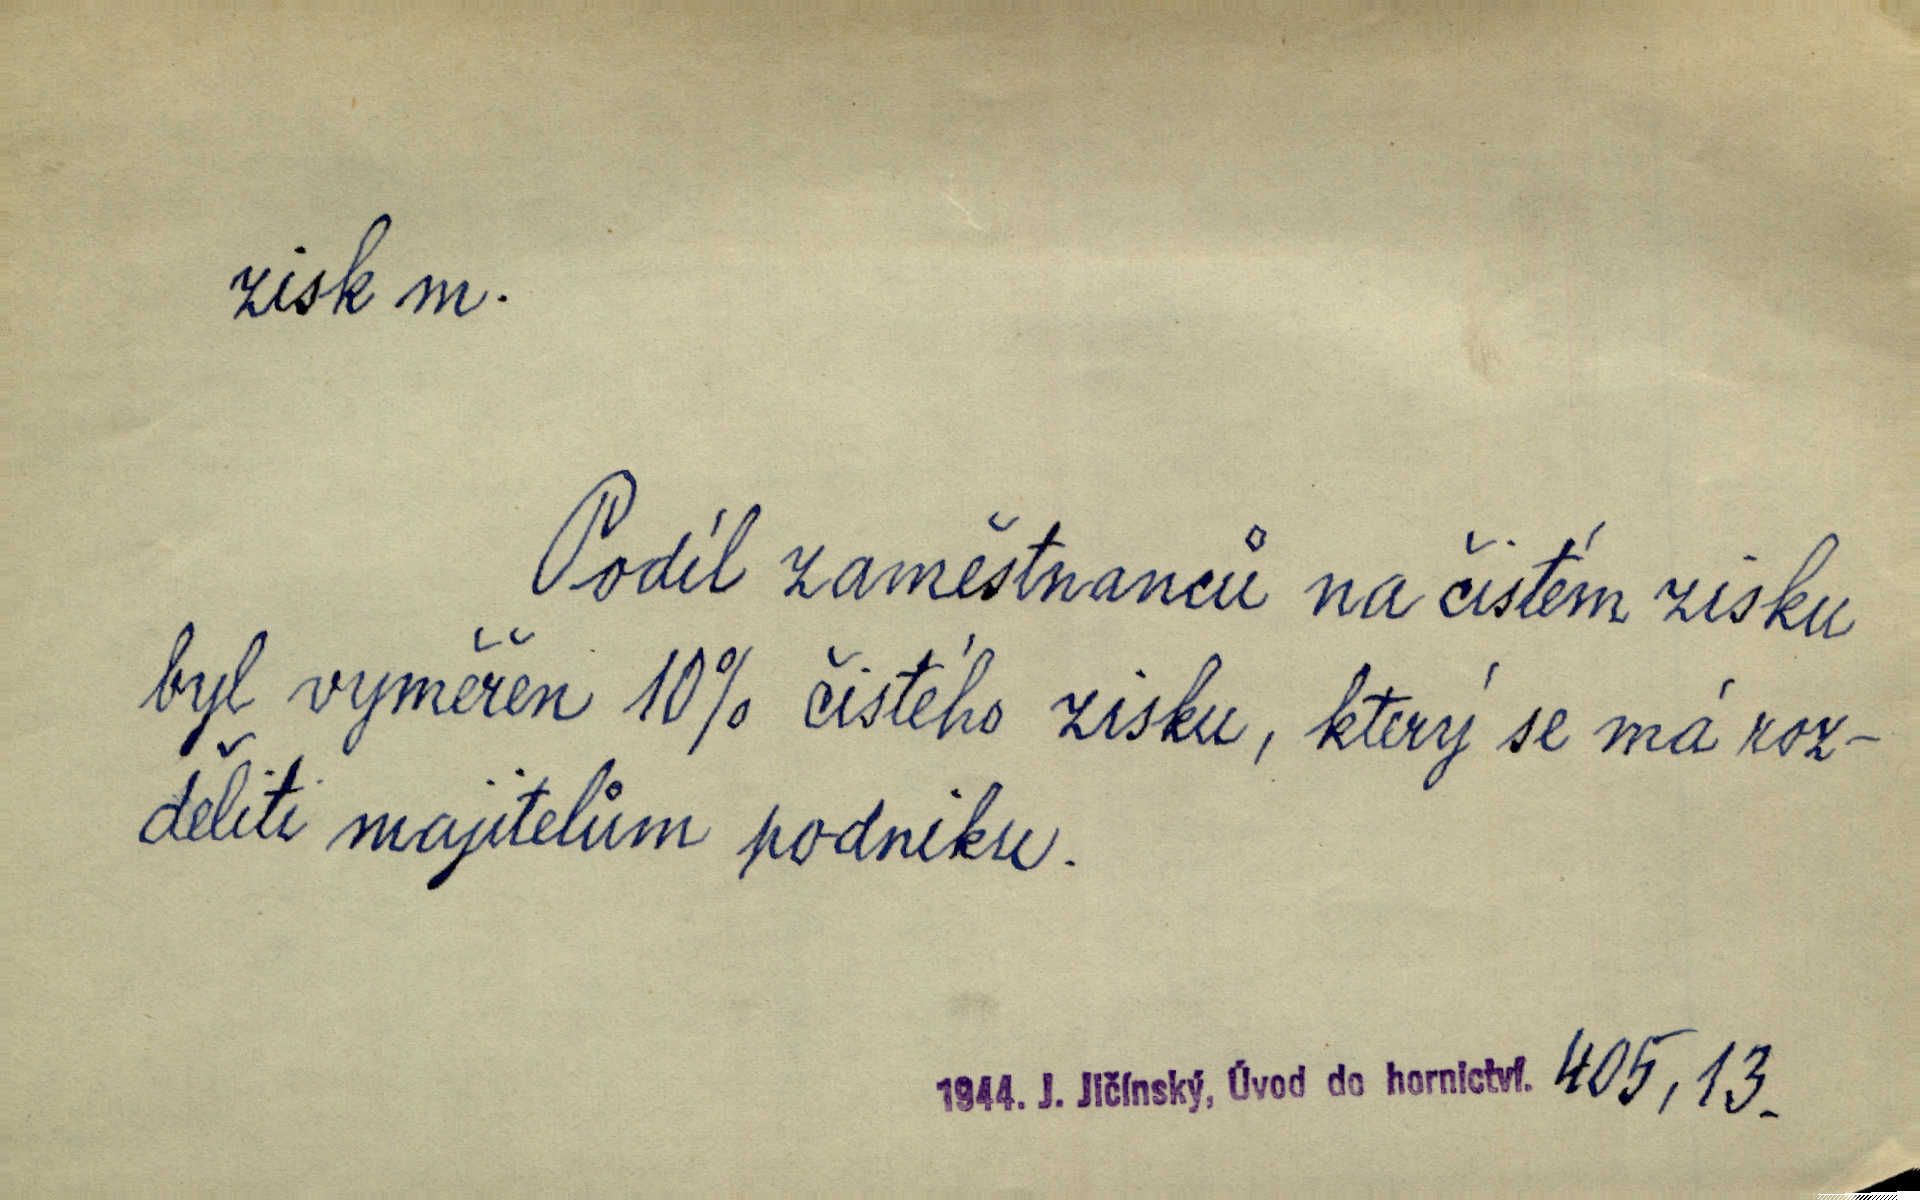 zisk m.
Podíl zaměstnanců na čistém zisku
byl vyměřen 10% čistého zisku, který se má roz-
děliti majitelům podniku.
1944. J. Jičínský, Úvod do hornictví. 405, 13.